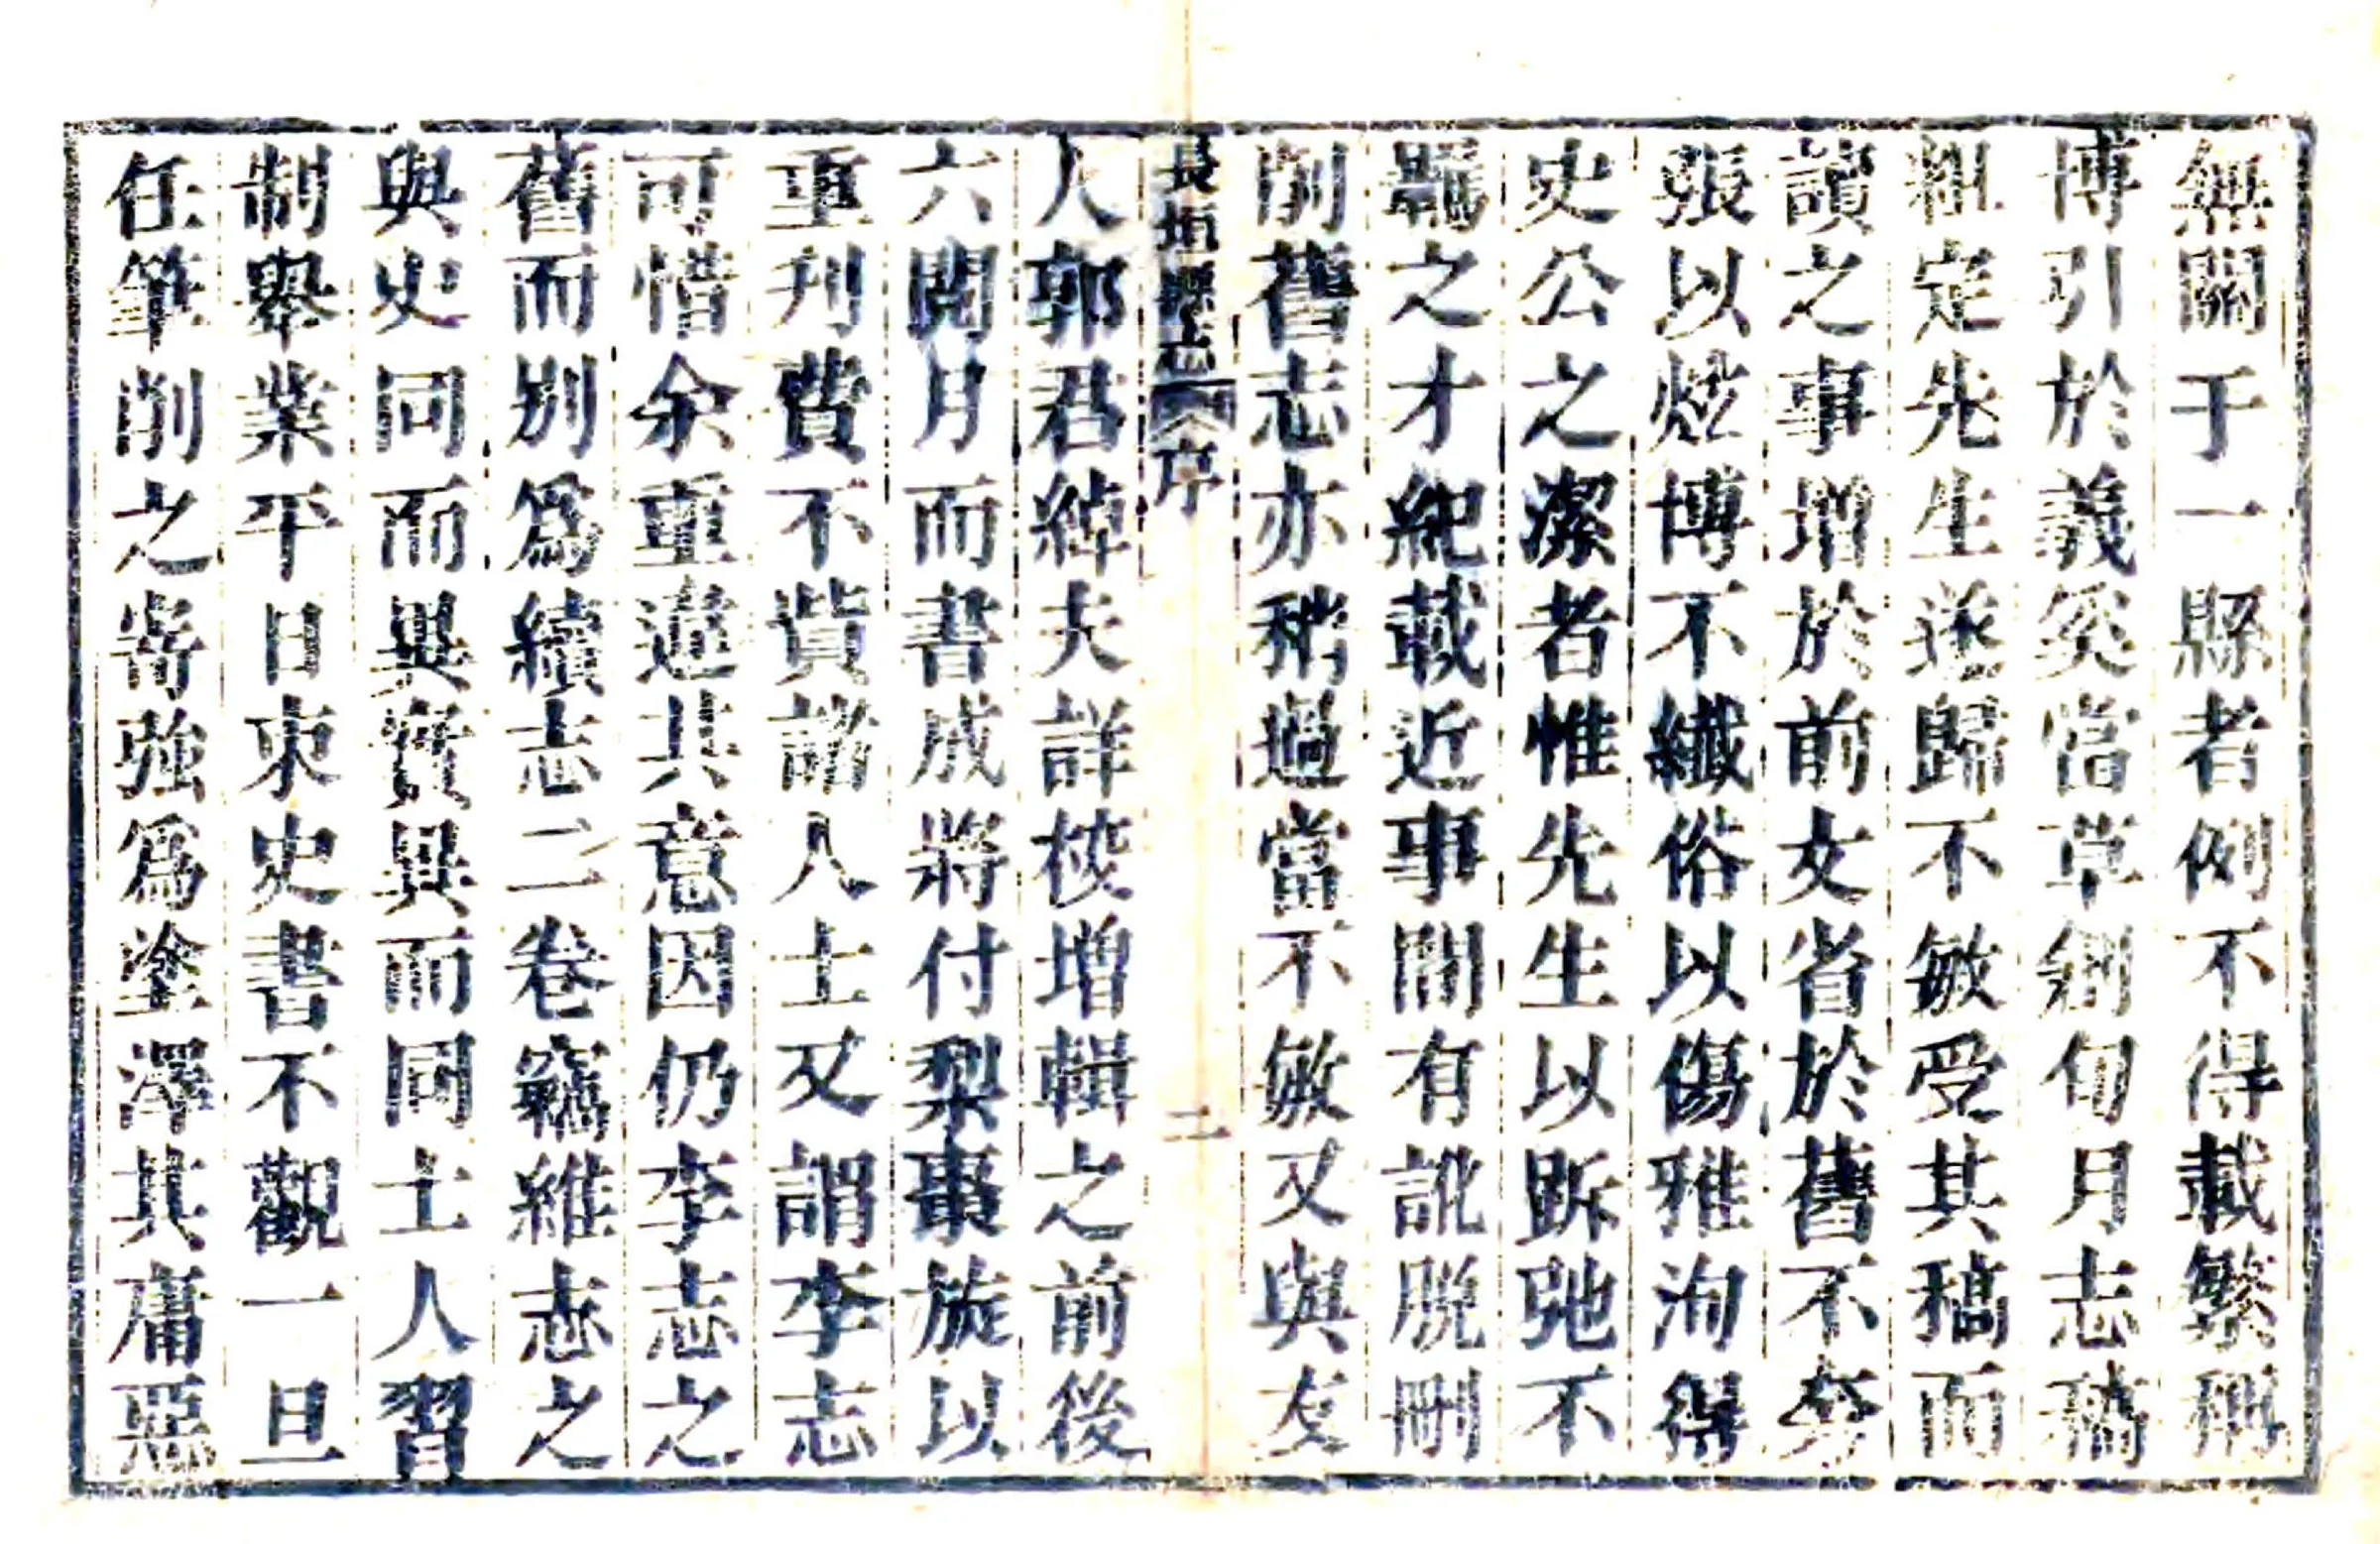 無關于一縣者例不得載繁稱
博引於義奚當草創旬月志稿
粗定先生遂歸不敏受其稿而
讀之事增於前文省於舊不夸
張以炫博不纎俗以傷雅洵得
史公之潔者惟先生以跅弛不
羈之才紀載近事間有訛脫刪
削舊志亦稍過當不敏又與友
長垣縣志 序 二
人郭君綽夫詳校增輯之前後
六閱月而書成將付梨棗旋以
重刋費不貲諸人士又謂李志
可惜余重違其意因仍李志之
舊而别爲續志二卷竊維志之
與史同而異實異而同士人習
制舉業平日束史書不觀一旦
任筆削之寄強爲塗澤其庸惡